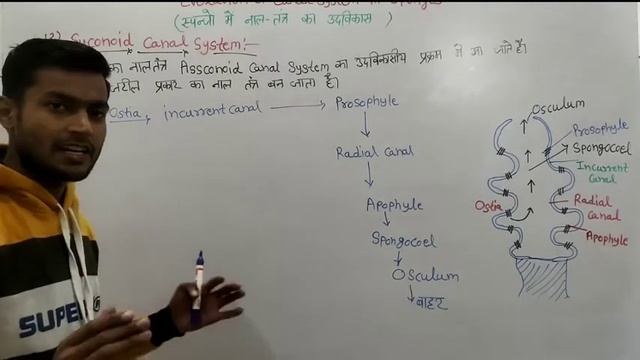 Evolution of Canal System in Sponges
(स्पन्जो में नाल-तंत्र का उदविकास )
Syconoid Canal System:-
का नाल तंत्र Assconoid Canal System का उदविकासीय प्रक्रम में आ जाते है।
जटिल प्रकार का नाल तंत्र बन जाता है।
Ostia, incurrent canal → Prosophyle
Radial Canal
Apophyle
Spongocoel
Osculum
बाहर
Osculum
Prosophyle
Spongocoel
Incurrent
Canal
Ostia
Radial
Canal
Apophyle
SUPER